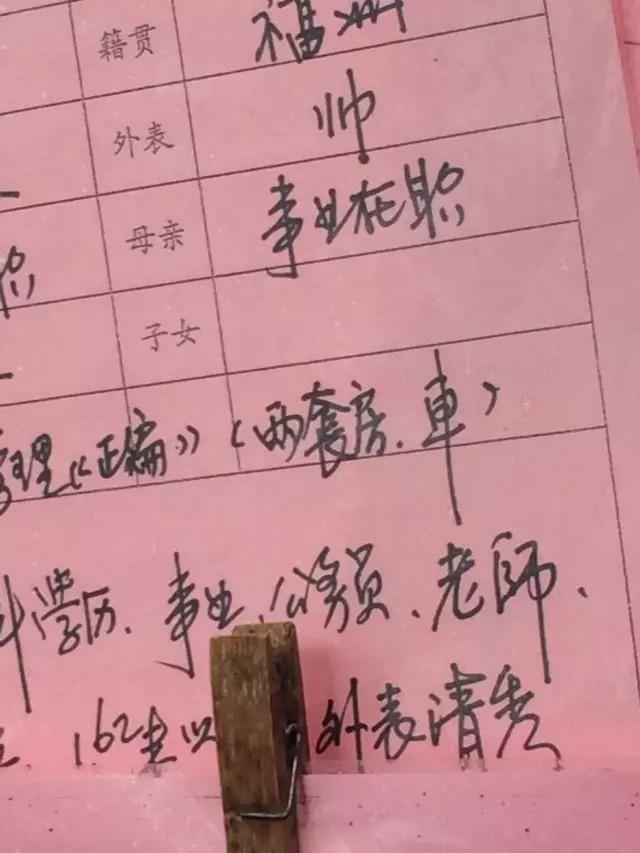 籍贯 福州
外表 帅
母亲 事业在职
职
子女
管理《正编》（两套房、車）
科学历、事业、公务员、老師、
162左以 外表清秀